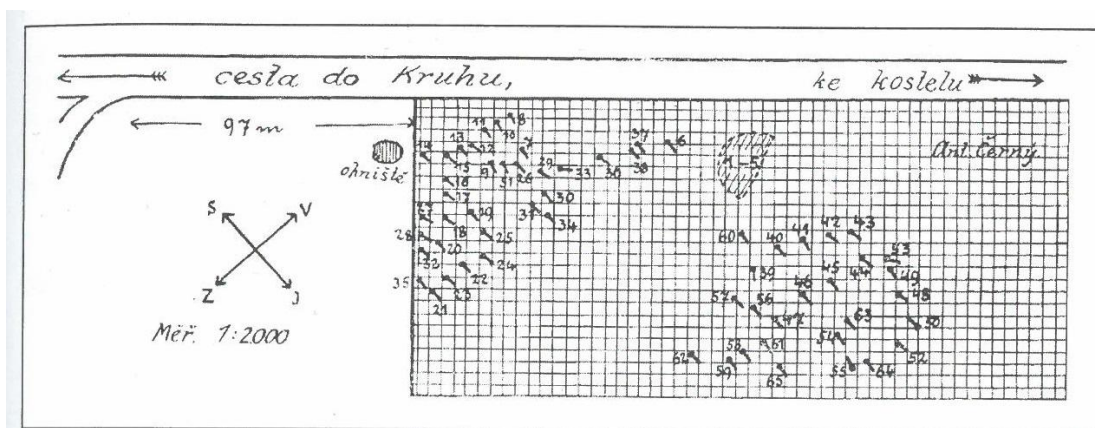 cesta do Kruhu, ke kostelu
97 m
ohniště
Ant. Černý
S V
Z J
Měř. 1:2000
11 8
10
13 12 7 37 6
14 38
15 9 51 26 29 33 36
1-5
16
17 30
19 31 34
18 25
28 20
32 24
22
35 23
21
60 40 41 42 43
53
39 45 44 49
46 48
57 56
47 63 50
54
58 61 52
62 59 65 55 64